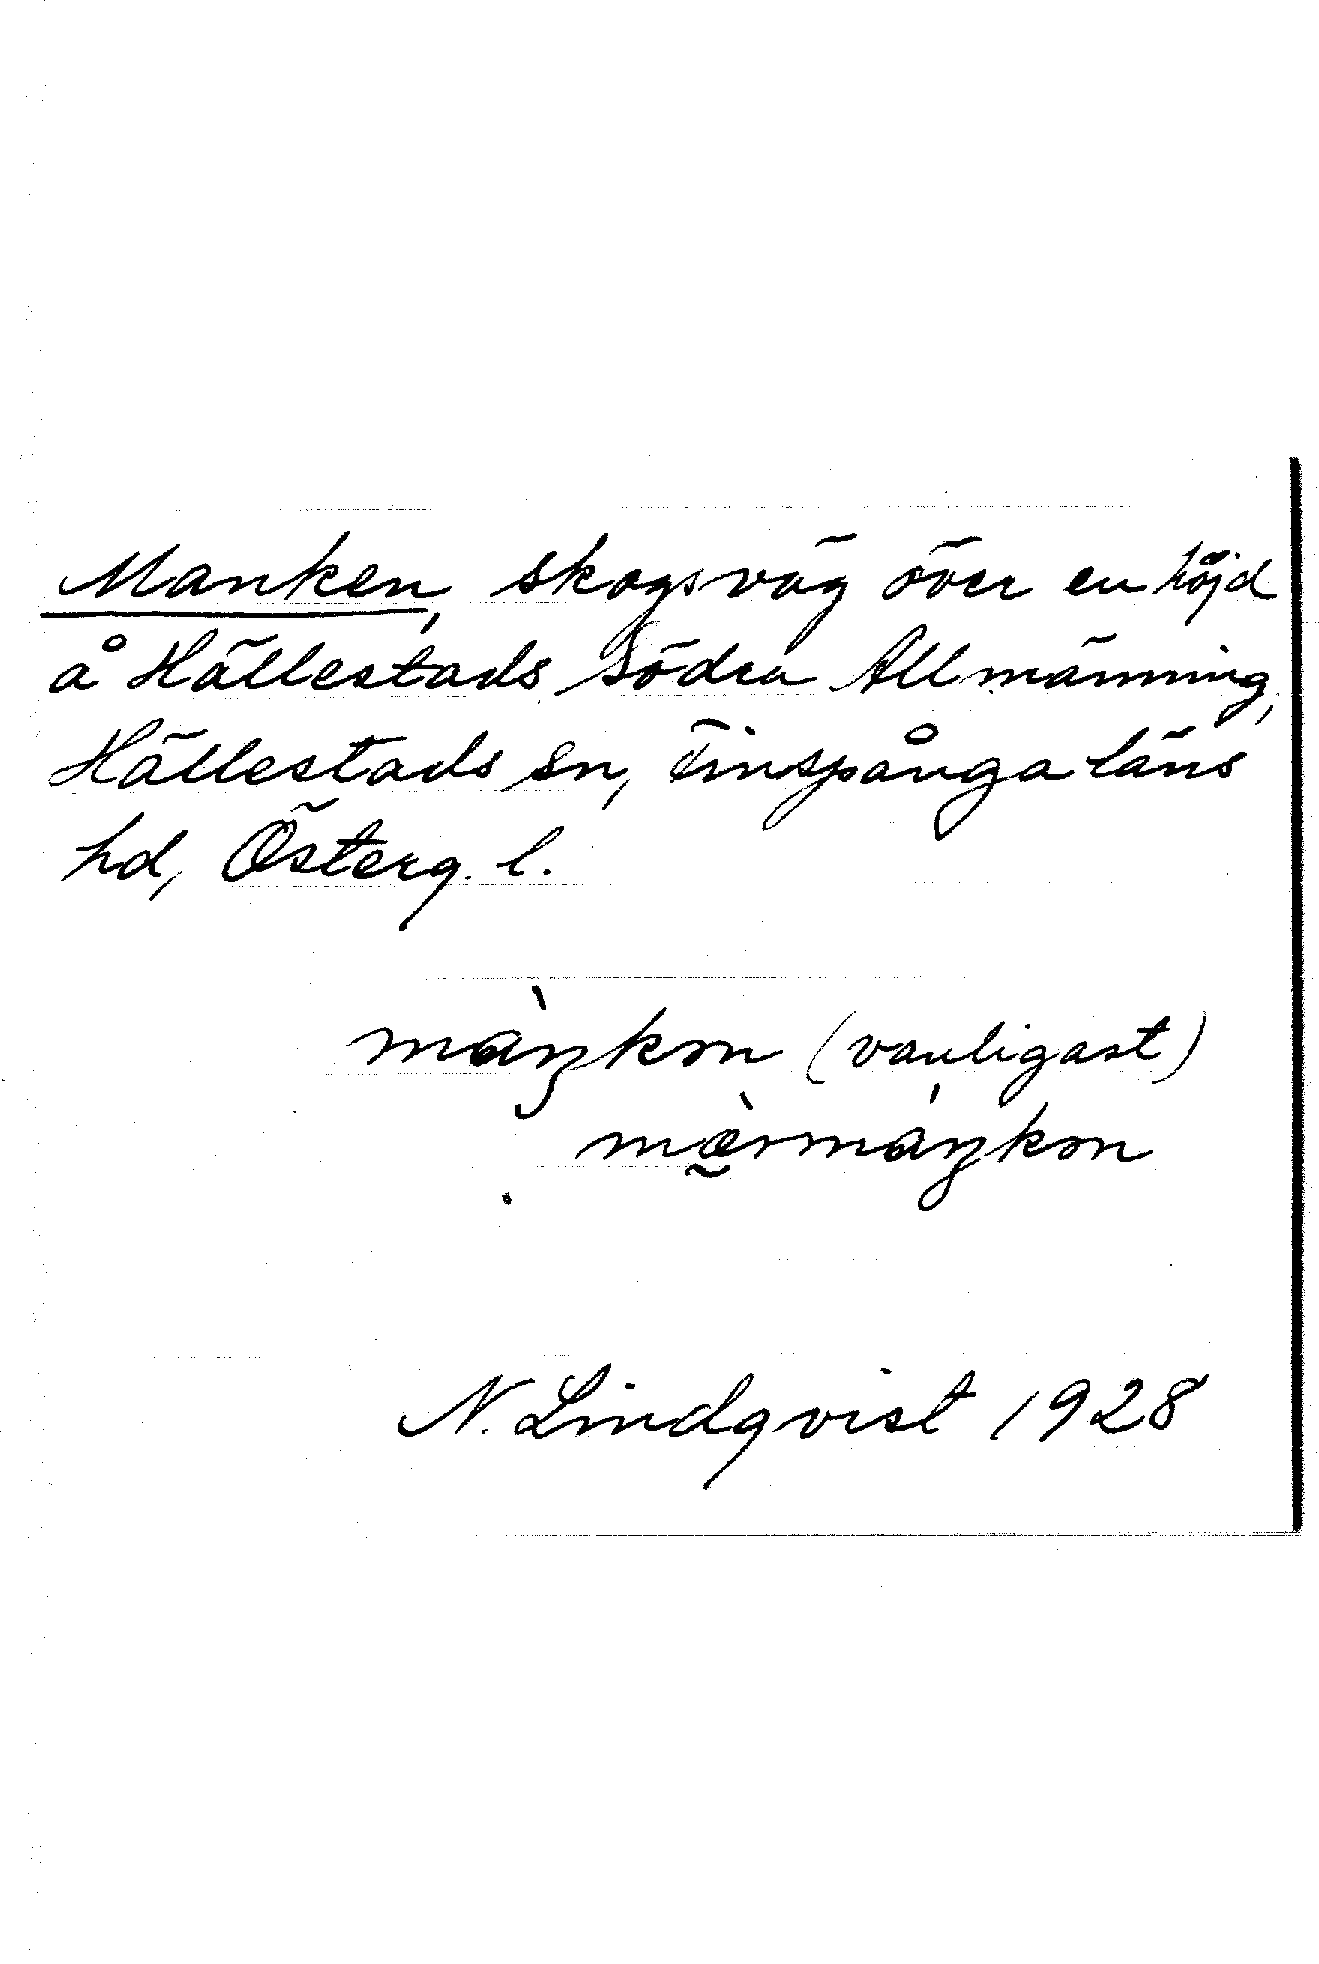 Manken, skogsväg över en höjd
å Hällestads Södra Allmänning,
Hällestads sn, Finspånga läns
hd, Österg. l.
màŋkən (vanligast)
mæ̀rmáŋkən
N. Lindqvist 1928